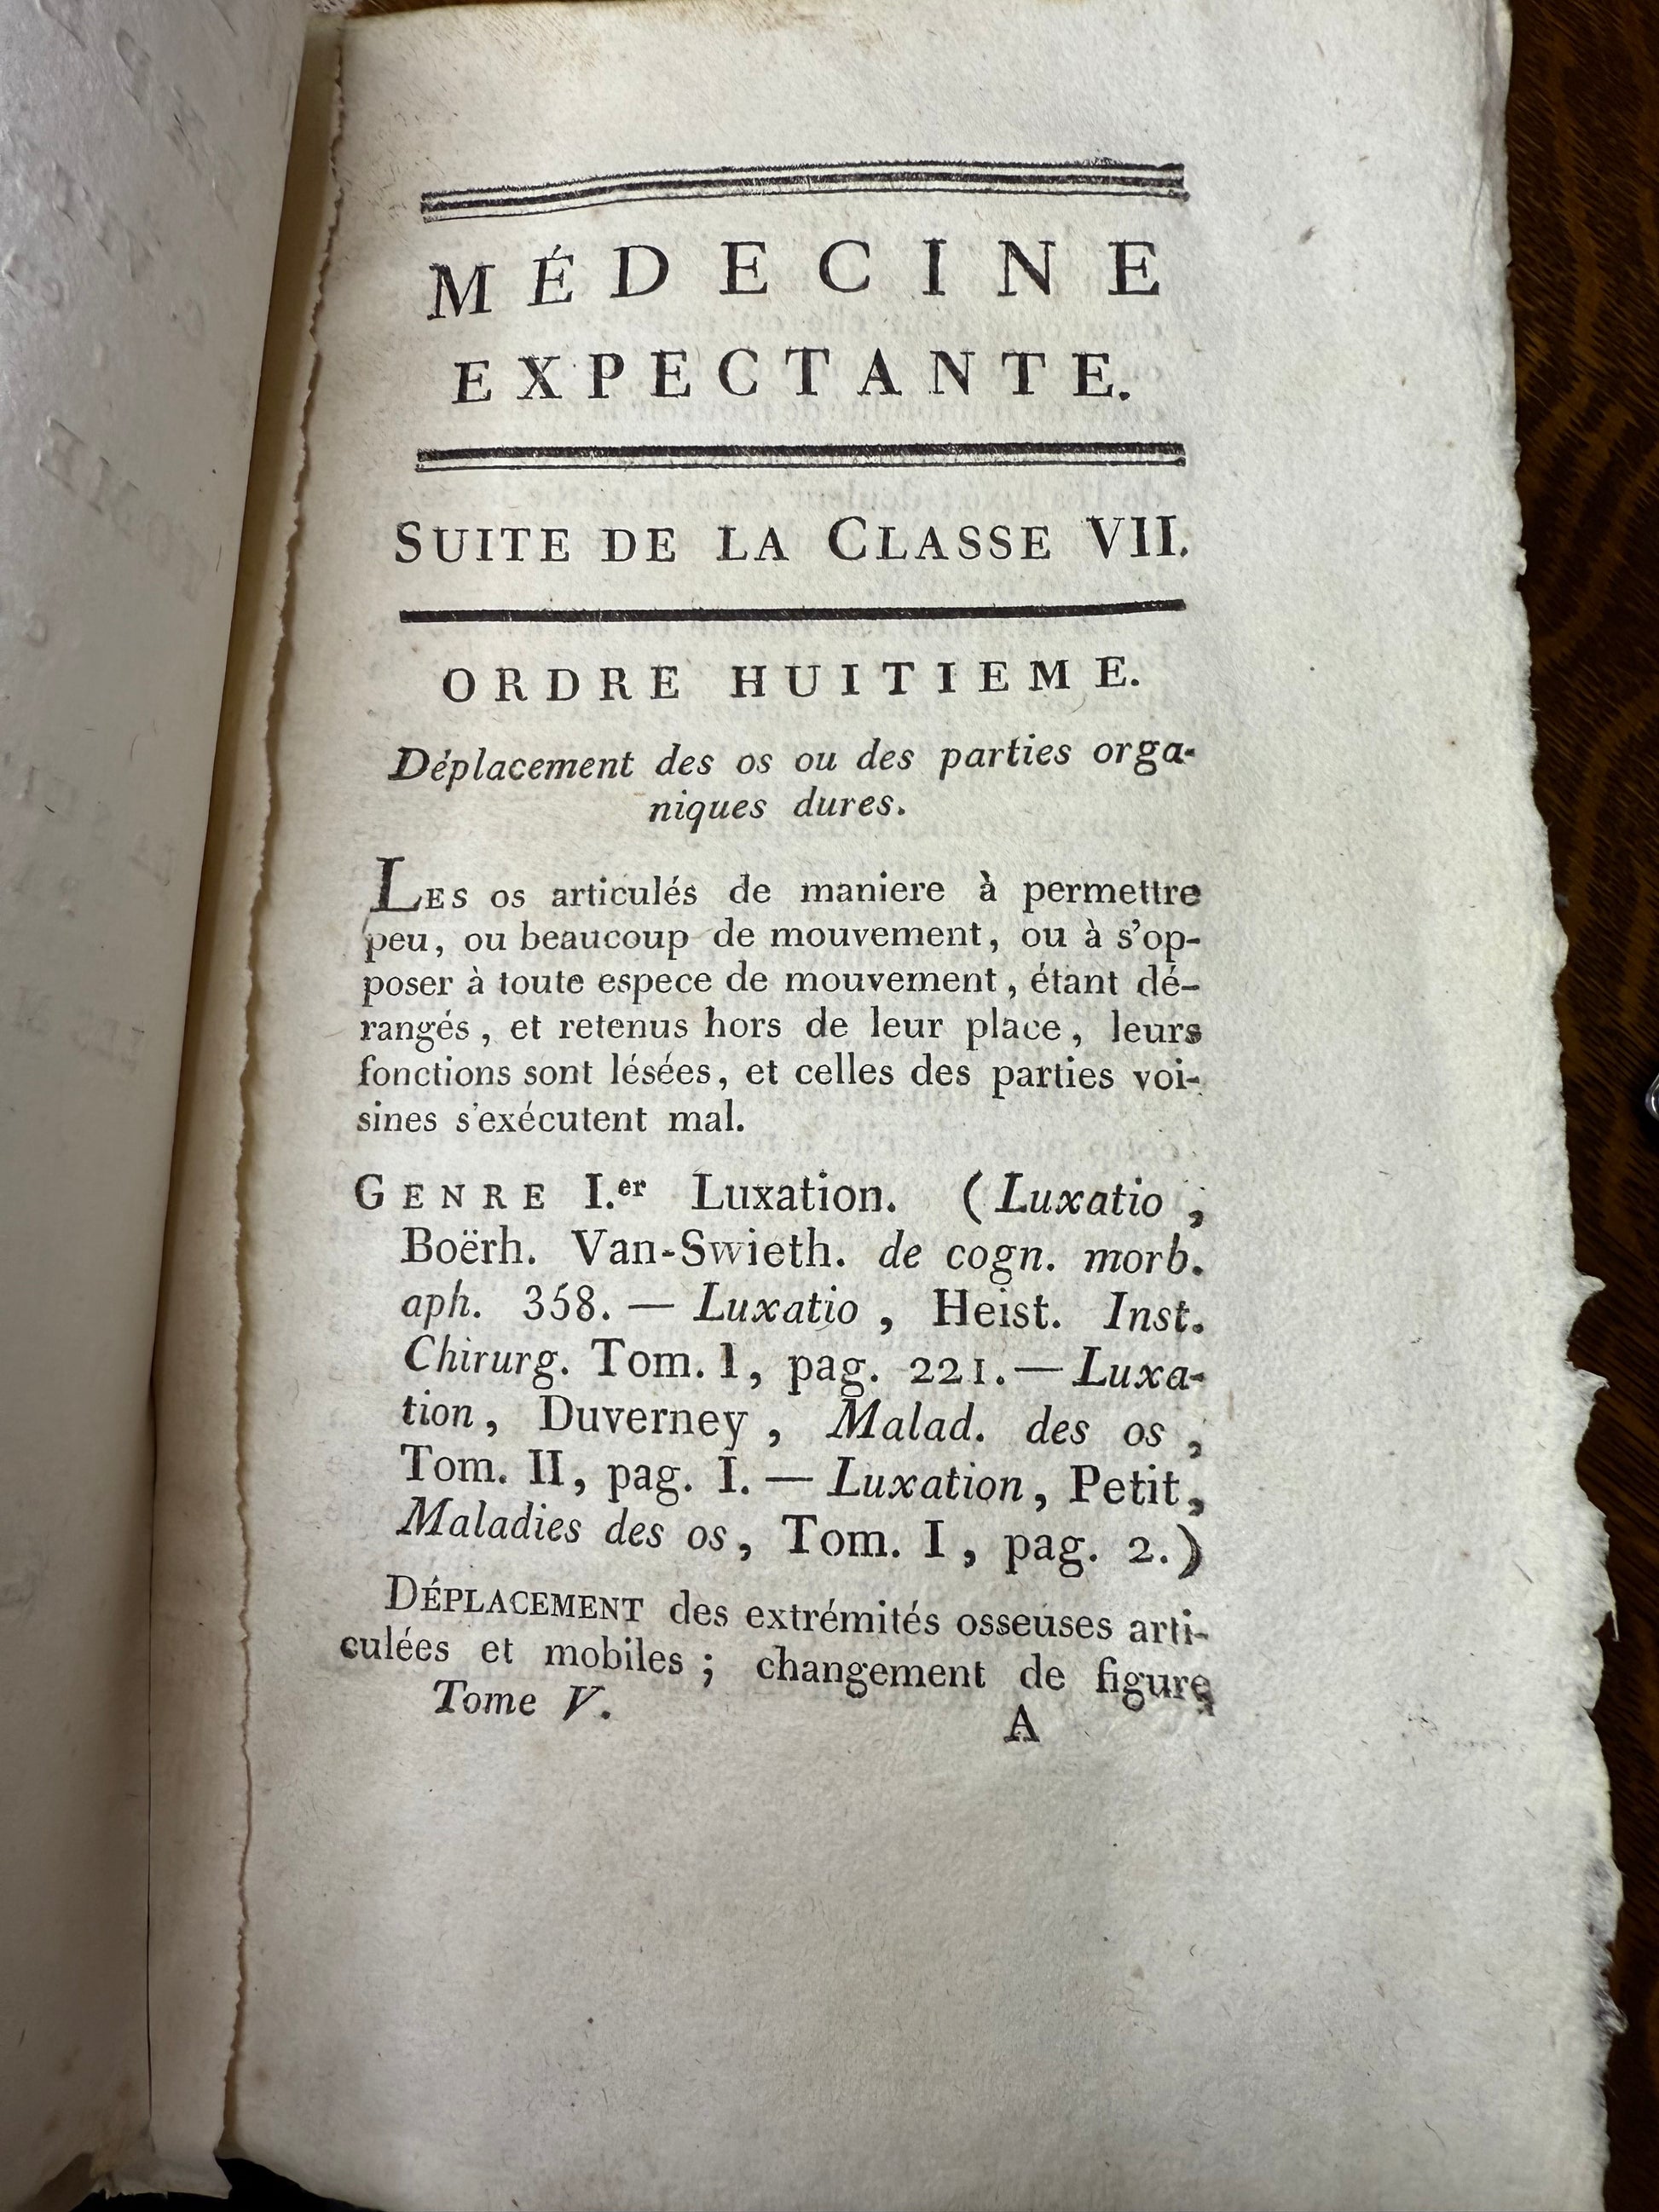 MÉDECINE
EXPECTANTE.
SUITE DE LA CLASSE VII.
ORDRE HUITIEME.
Déplacement des os ou des parties orga-
niques dures.
LES os articulés de maniere à permettre
peu, ou beaucoup de mouvement, ou à s'op-
poser à toute espece de mouvement, étant dé-
rangés, et retenus hors de leur place, leurs
fonctions sont lésées, et celles des parties voi-
sines s'exécutent mal.
GENRE I.er Luxation. (Luxatio,
Boërh. Van-Swieth. de cogn. morb.
aph. 358. — Luxatio, Heist. Inst.
Chirurg. Tom. I, pag. 221. — Luxa-
tion, Duverney, Malad. des os,
Tom. II, pag. I. — Luxation, Petit,
Maladies des os, Tom. I, pag. 2.)
DÉPLACEMENT des extrémités osseuses arti-
culées et mobiles; changement de figure
Tome V. A